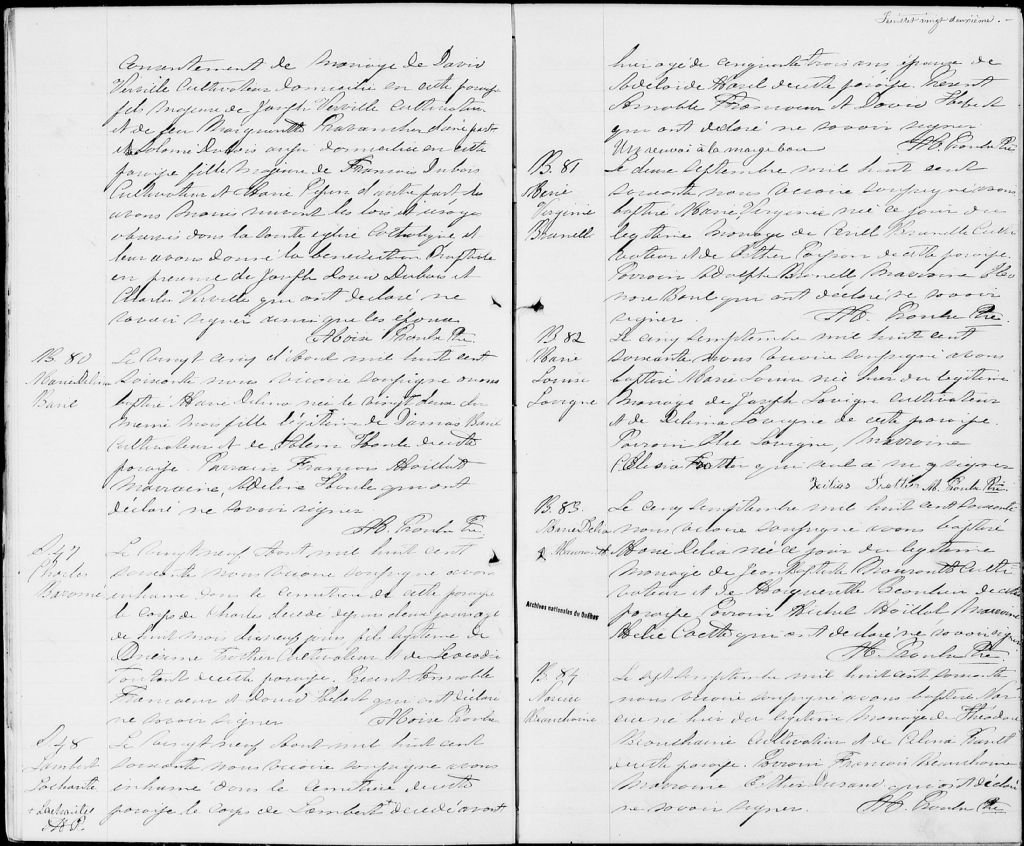 consentement de mariage de David
Verville Cultivateur domicilié en cette paroisse
fils majeur de Joseph Verville Cultivateur
et de feu Marguerite d'une part
et Dubois aussi domiciliée en cette
paroisse fille majeure de Francois Dubois
Cultivateur et Marie Pepin d'autre part, les
avons mariés suivant les lois et usages
observés dans la sainte eglise Catholique et
leur avons donné la benediction Nuptiale
en presence de Joseph Louis Dubois et
Charles Verville qui ont declaré ne
savoir signer ainsi que les epoux
Moise Proulx Ptre
B. 80
Marie Delina
Baril
Le vingt cinq d'Aout mil huit cent
soixante nous vicaire soussigné avons
baptisé Marie Delina née le vingt deux du
meme mois fille légitime de Damas Baril
Cultivateur et de Houle de cette
paroisse. Parrain Francois
Marraine, Adeline Houle qui ont
déclaré ne savoir signer.
M. Proulx Ptre
S. 47
Charles
Le vingt neuf Aout mil huit cent
soixante nous vicaire soussigné avons
enhumé dans le cemetiere de cette paroisse
le corps de Charles decedé depuis deux jours agé
de huit mois dixneuf jours fils legitime de
Onezime Trother Cultivateur et de Leocadie
Toutant de cette paroisse. Present Amable
Francoeur et Louis Hebert qui ont déclaré
ne savoir signer
Moise Proulx
S. 48
Lambert
M. P.
Le vingt neuf Aout mil huit cent
soixante nous vicaire soussigné avons
enhumé dans le cemetiere de cette
paroisse le corps de Lambert decedé avant
Feuillet vingt deuxième.
hier agé de cinquante trois ans epoux de
Adelaide de cette paroisse. Present
Amable Francoeur et Louis Hebert
qui ont declaré ne savoir signer
Un renvoi à la marge bon
M. Proulx Ptre
B. 81
Marie
Virginie
Brunelle
Le deux septembre mil huit cent
soixante nous vicaire soussigné avons
baptisé Marie Virginie née ce jour du
legitime mariage de Brunelle Culti
vateur et de Esther de cette paroisse.
Parrain Adolphe Brunelle Marraine Eleo
nore Baril qui ont declaré ne savoir
signer.
M. Proulx Ptre
B. 82
Marie
Louise
Lavigne
Le cinq Semptembre mil huit cent
soixante nous vicaire soussigné avons
baptisé Marie Louise née hier du legitime
mariage de Joseph Lavigne Cultivateur
et de Delima Lavigne de cette paroisse.
Parrain Lavigne, Marraine
Trother qui seul a signer
Trother M. Proulx Ptre
B. 83.
Marie Delia
Le cinq Semptembre mil huit cent soixante
nous vicaire soussigné avons baptisé
Marie Delia née ce jour du legitime
mariage de Jean Baptiste Culti
vateur et de Marguerite Beaulieu de cette
paroisse Parrain Michel Marraine
qui ont declaré ne savoir signer
M. Proulx Ptre
Archives nationales du Québec
B. 84
Beauchaine
Le sept Semptembre mil huit cent soixante
nous vicaire soussigné avons baptisé Nar
cisse né hier du legitime mariage de Théodore
Beauchaine Cultivateur et de Celina
de cette paroisse. Parrain Francois Beauchaine
Marraine Esther Durand qui ont déclaré
ne savoir signer.
M. Proulx Ptre